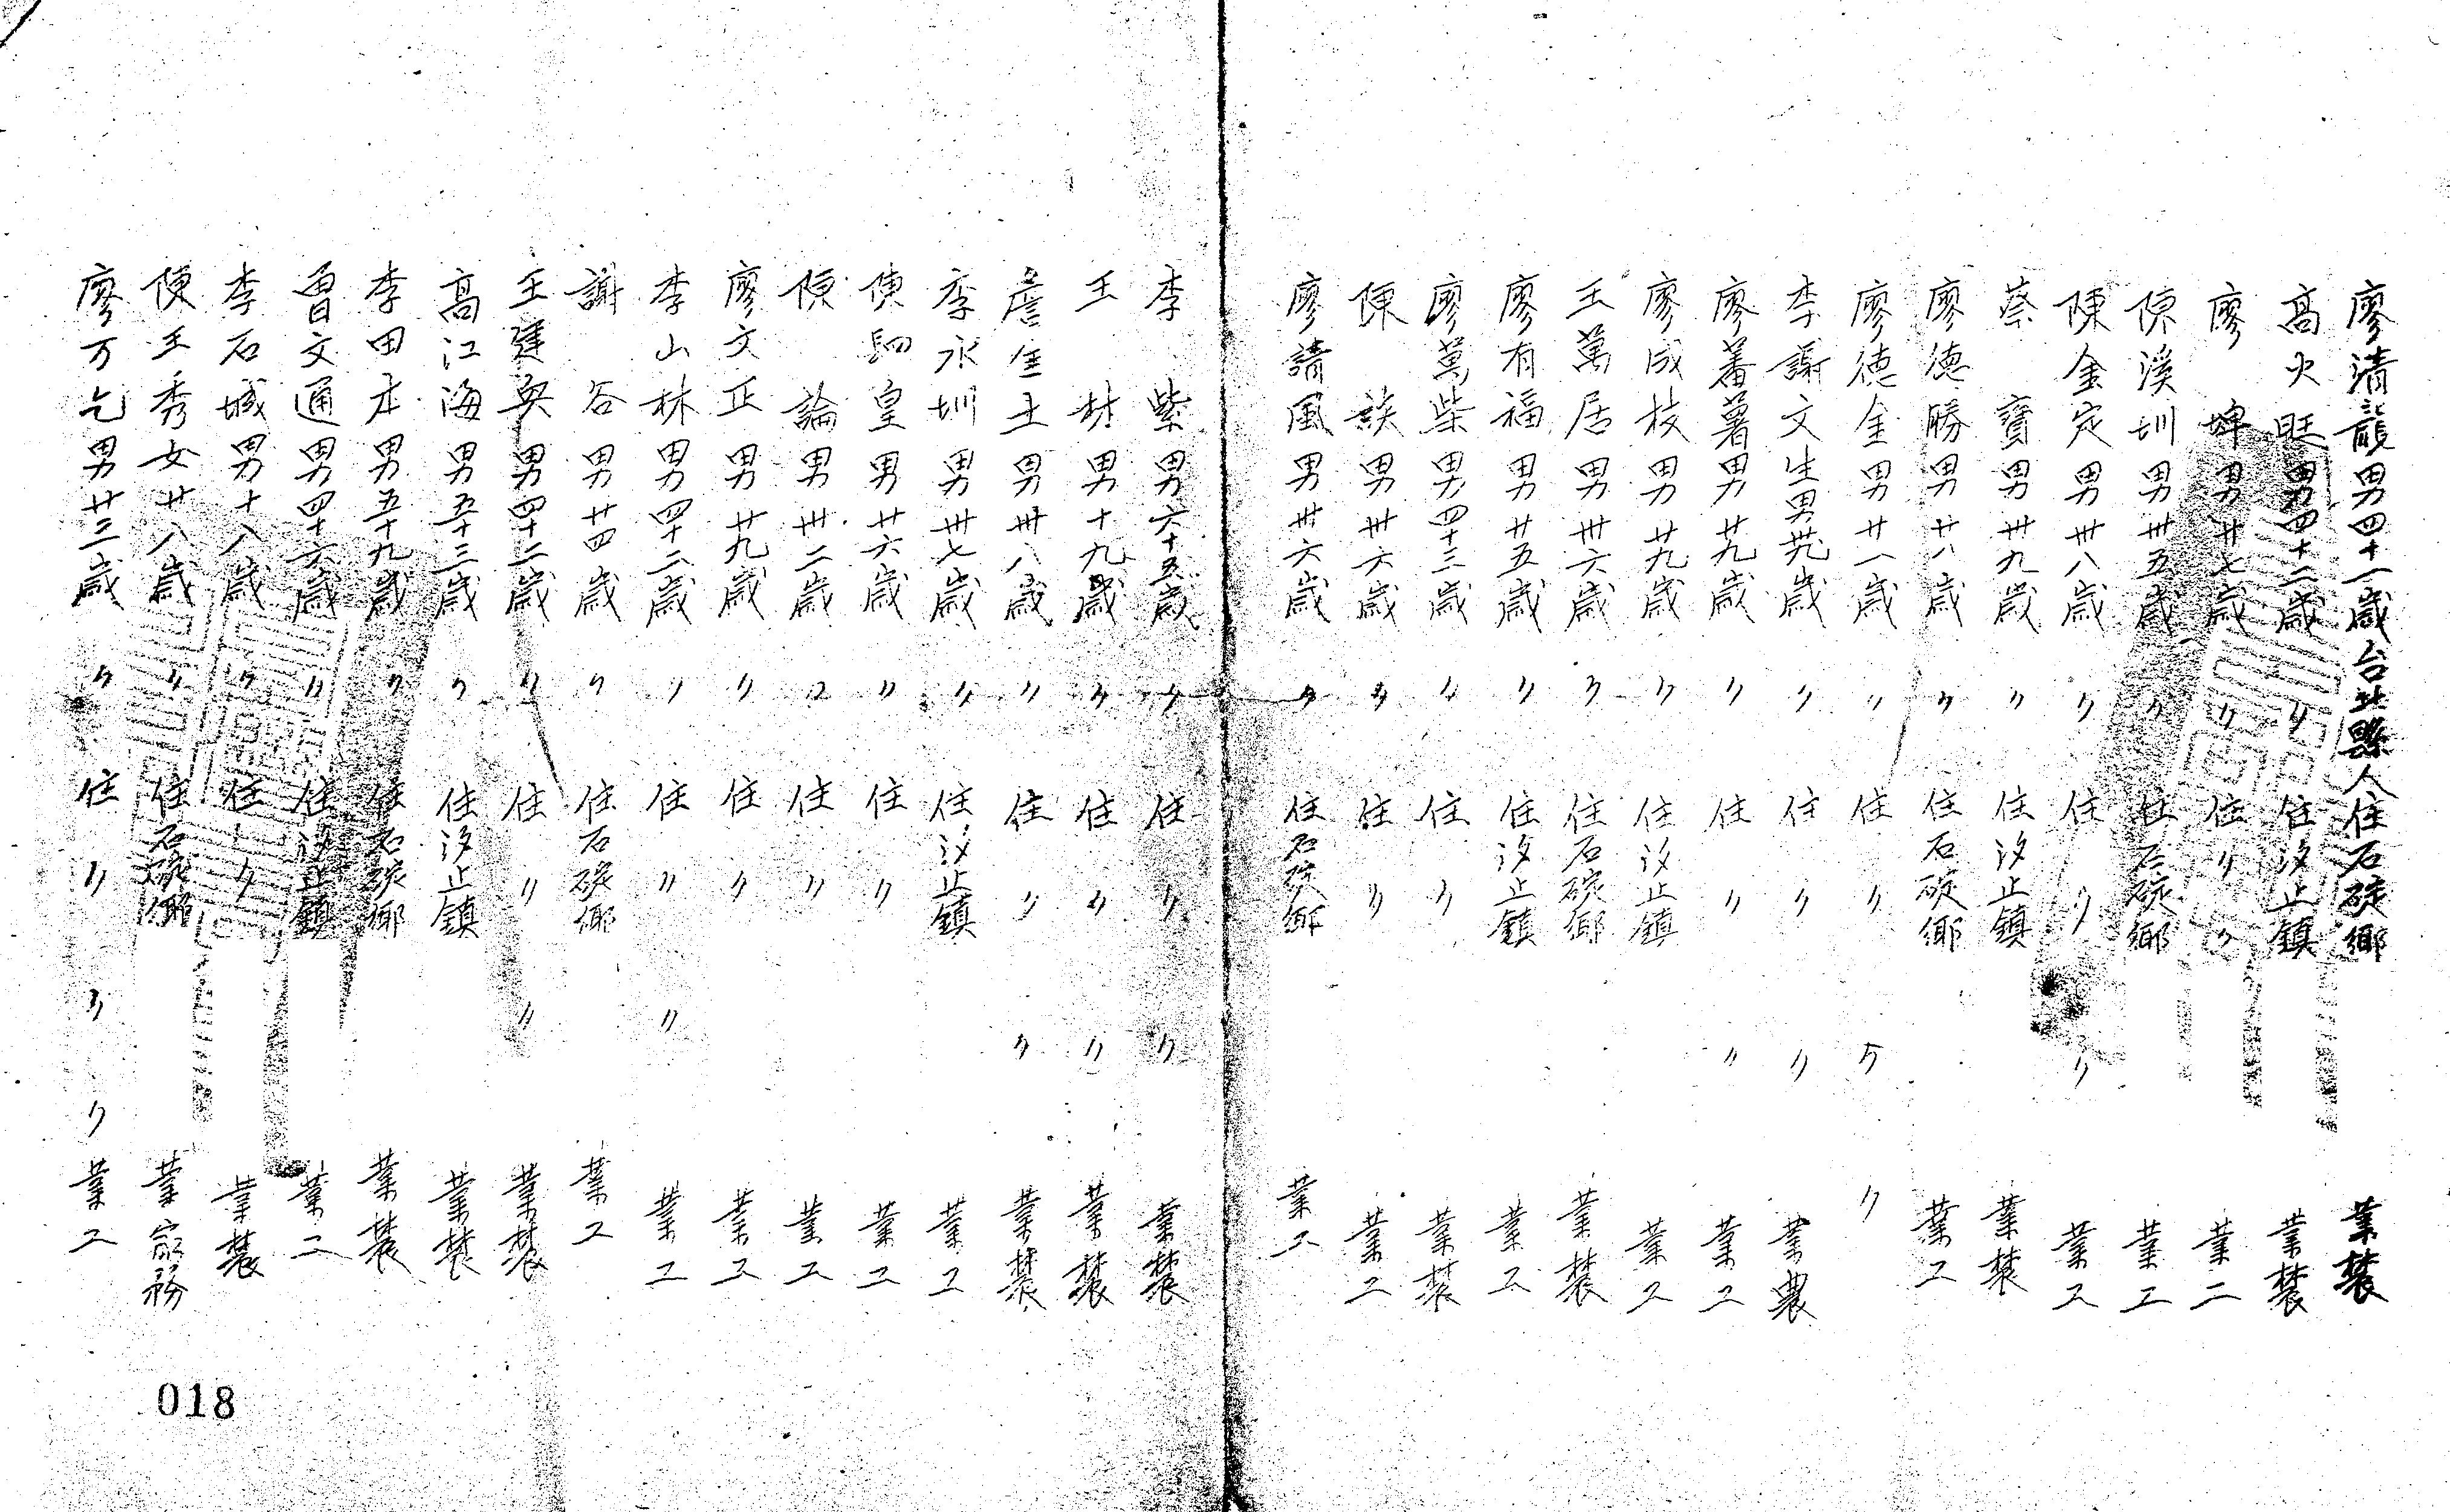 廖清龍男四十一歲台北縣人住石碇鄉業農
高火旺男四十二歲〃住汐止鎮業農
廖 埤男卅七歲〃住〃〃業工
陳溪圳男卅五歲〃住石碇鄉業工
陳金定男卅八歲〃住〃〃業工
蔡 寶男卅九歲〃住汐止鎮業農
廖德勝男廿八歲〃住石碇鄉業工
廖德金男廿一歲〃住〃〃〃
李謝文生男卅九歲〃住〃〃業農
廖蕃薯男廿九歲〃住〃〃業工
廖成枝男廿九歲〃住汐止鎮業工
王萬居男卅六歲〃住石碇鄉業農
廖有福男廿五歲〃住汐止鎮業工
廖萬柴男四十三歲〃住〃業農
陳 談男卅六歲〃住〃業工
廖請風男卅六歲〃住石碇鄉業工
李 紫男六十五歲〃住〃〃業農
王 材男十九歲〃住〃〃業農
詹金土男卅八歲〃住〃〃業農
李水圳男卅七歲〃住汐止鎮業工
陳 皇男廿六歲〃住〃業工
陳 論男卅二歲〃住〃業工
廖文正男廿九歲〃住〃業工
李山林男四十二歲〃住〃〃業工
謝 谷男廿四歲〃住石碇鄉業工
王建興男四十二歲〃住〃〃業農
高江海男五十三歲〃住汐止鎮業農
李田本男五十九歲〃住石碇鄉業農
曾文通男四十六歲〃住汐止鎮業工
李石城男十八歲〃住〃業農
陳王秀女廿八歲〃住石碇鄉業家務
廖万乞男廿三歲〃住〃〃〃業工
018